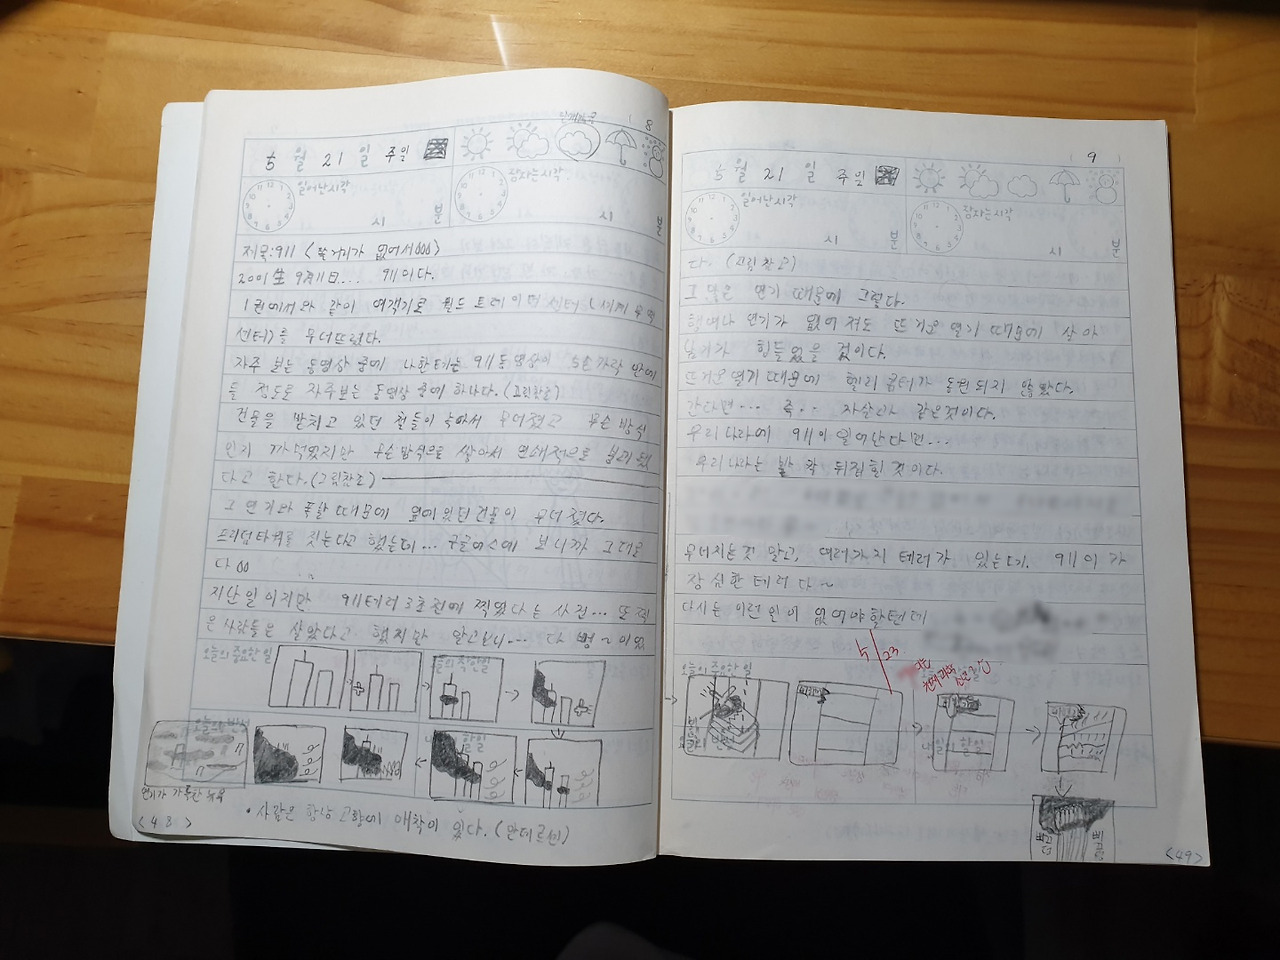 8
안개낌
5월 21일 주일
일어난시각
잠자는시각
시 분
시 분
제목:911 <쓸거리가 없어서ooo>
2001生 9月11日.... 911이다.
1권에서와 같이 여객기로 월드 트레이더 센터 (세계무역
센터)를 무너뜨렸다.
자주 보는 동영상 중에 나한테는 911동영상이 5손가락 안에
들 정도로 자주보는 동영상 중에 하나다.(그림참조)
건물을 받치고 있던 철들이 녹아서 무너졌고 무슨 방식
인지 까먹었지만 무슨방식으로 쌓아서 연쇄적으로 붕괴됬
다고 한다.(그림참조)
그 연기와 폭발 때문에 옆에 있던 건물이 무너졌다.
프리덤타워를 짓는다고 했는데... 구글어스에 보니까 그대로
다oo
지난일이지만 911테러 3초전에 찍었다는 사진... 또 찍
은사람들은 살았다고 했지만 알고보니... 다 뻥~이었
오늘의 중요한 일
오늘의 착한일
오늘의 반성
내일 할일
연기가 가득찬 뉴욕
<48>
• 사람은 항상 고향에 애착이 있다. (안데르센)
9
5월 21일 주일
일어난시각
잠자는시각
시 분
시 분
다. (그림 참고)
그 많은 연기 때문에 그렇다.
했더나 연기가 없어져도 뜨거운 열기 때문에 살아
남기가 힘들었을 것이다.
뜨거운 열기 때문에 헬리콥터가 동원되지 않았다.
간다면... 즉.. 자살과 같은것이다.
우리나라에 911이 일어난다면...
우리나라는 발칵 뒤집힐 것이다.
무너지는것 말고, 여러가지 테러가 있는데. 911이 가
장 심한 테러다~
다시는 이런 일이 없어야할텐데
5/23
오늘의 중요한 일
내일 할일
<49>